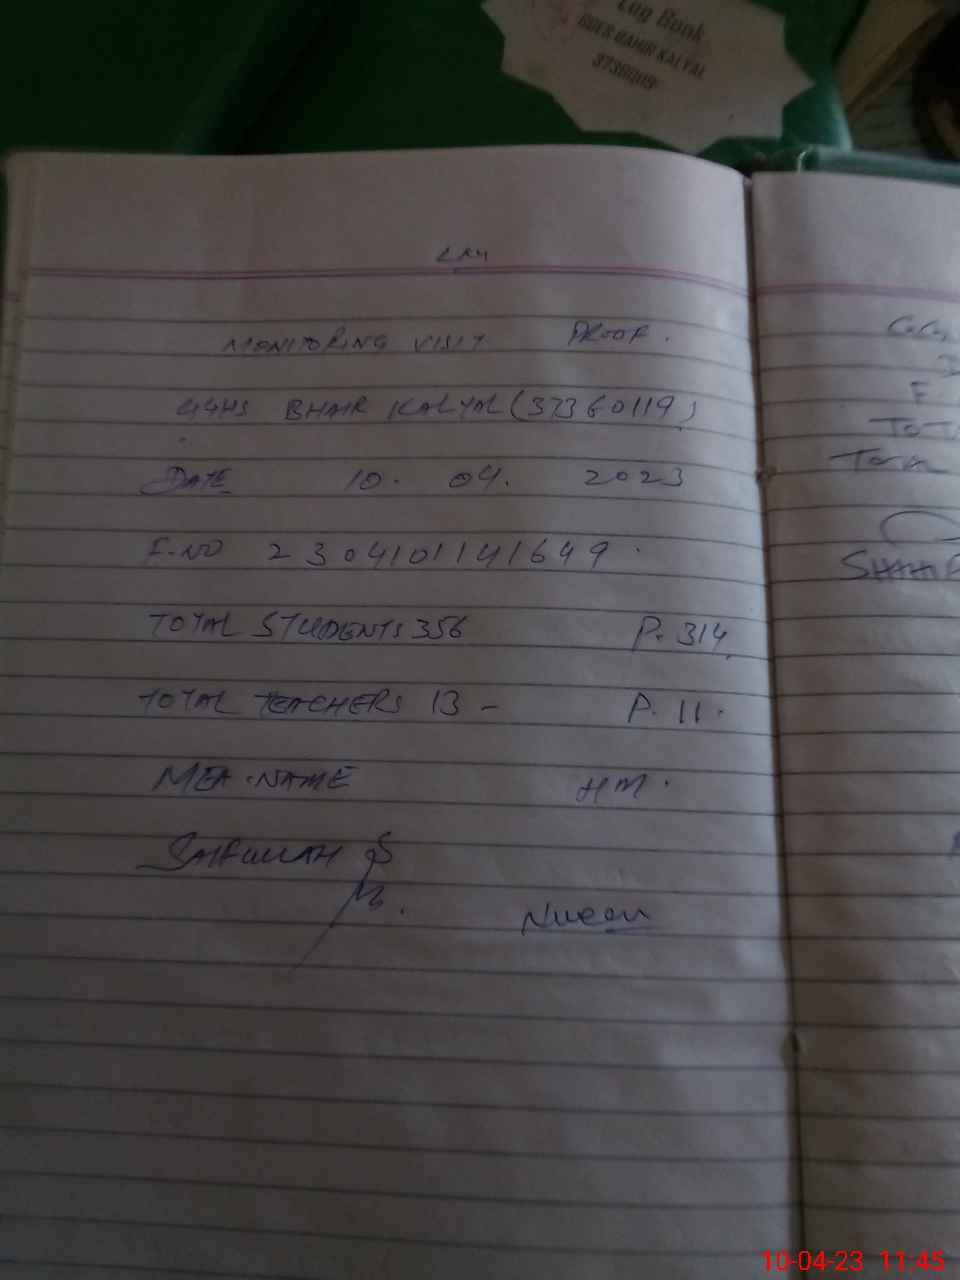 Log Book
GGES BAHIR KALYAL
37360119
MONITORING VISIT PROOF.
GGHS BHAIR KALYAL (37360119)
DATE 10. 04. 2023
F.NO 2304101141649.
TOTAL STUDENTS 356 P. 314
TOTAL TEACHERS 13 - P. 11.
MEA.NAME HM.
SAIFULLAH
10-04-23 11:45